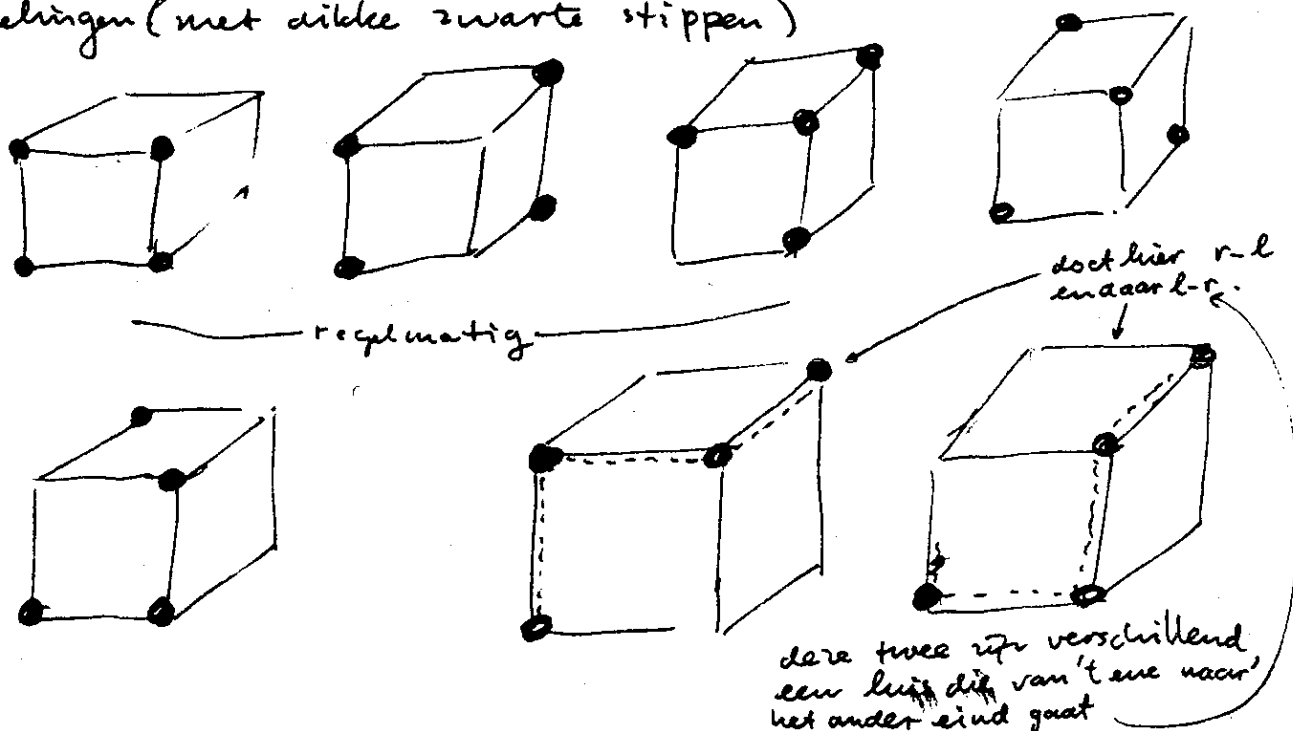 elingen (met dikke zwarte stippen)
doet hier r-l
en daar l-r.
regelmatig
deze twee zijn verschillend
een luis die van 't ene naar
het ander eind gaat